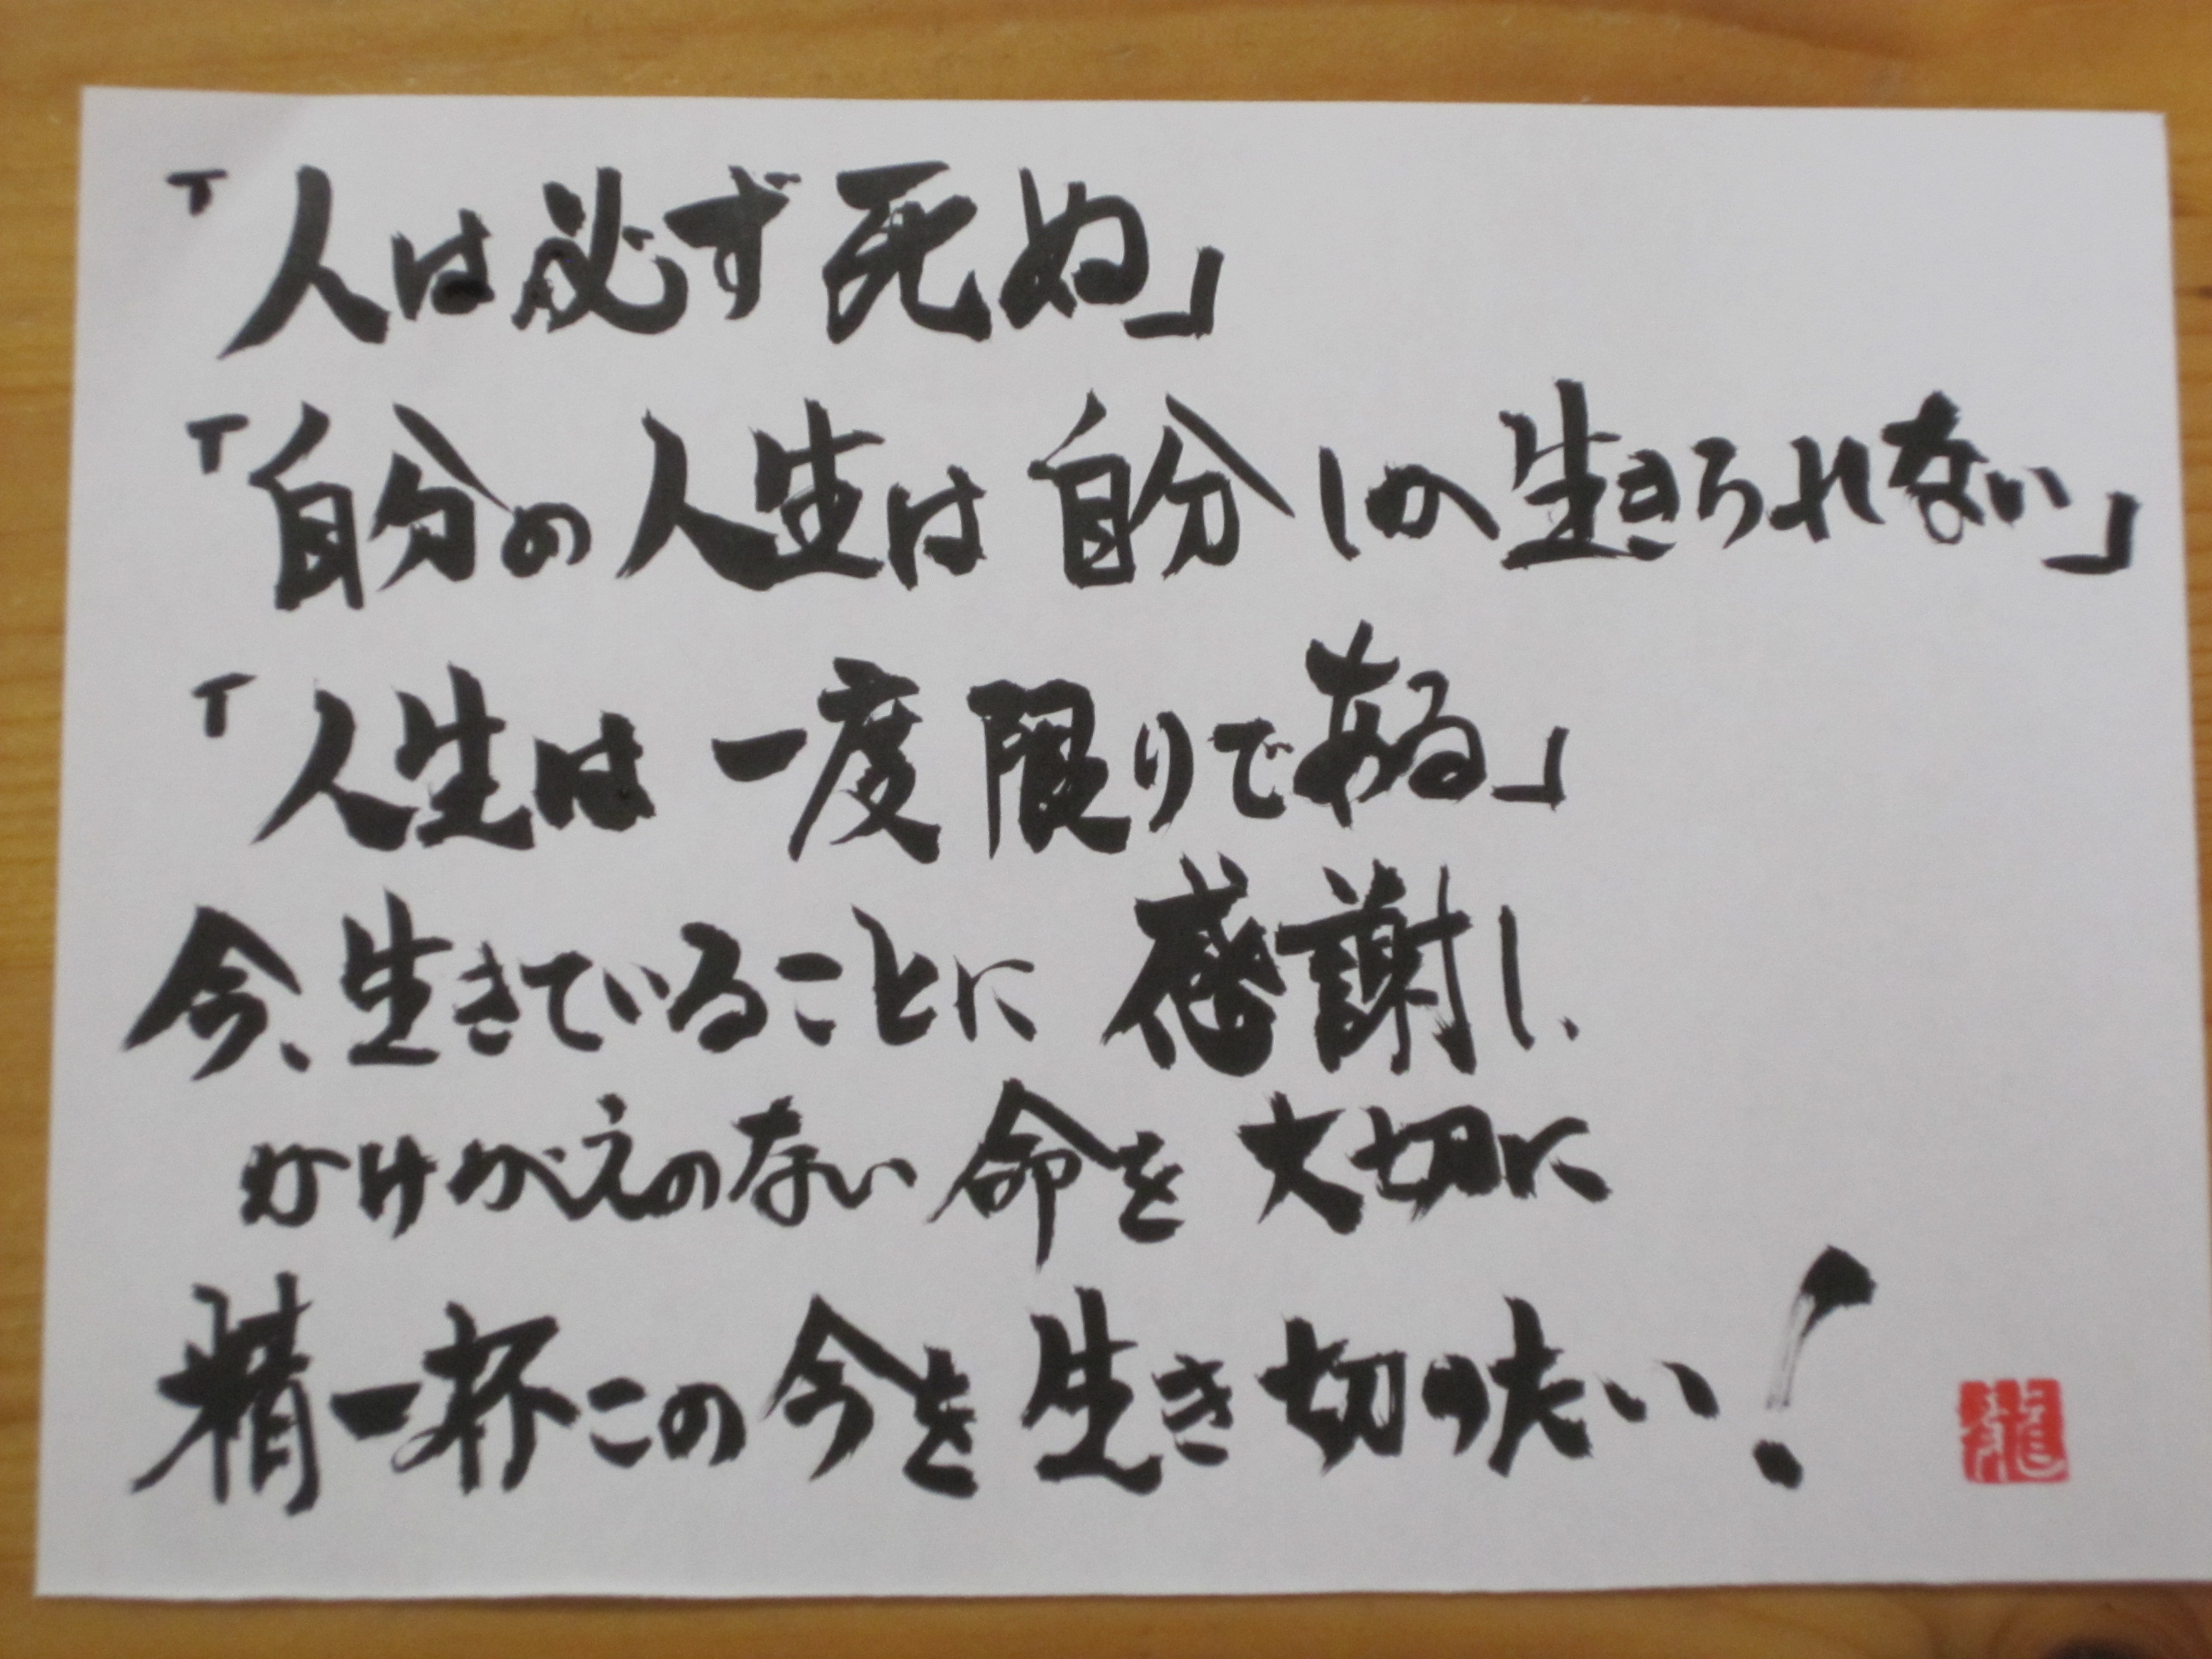 「人は必ず死ぬ」
「自分の人生は自分しか生きられない」
「人生は一度限りである」
今、生きていることに感謝し、
かけがえのない命を大切に
精一杯この今を生き切りたい!
龍